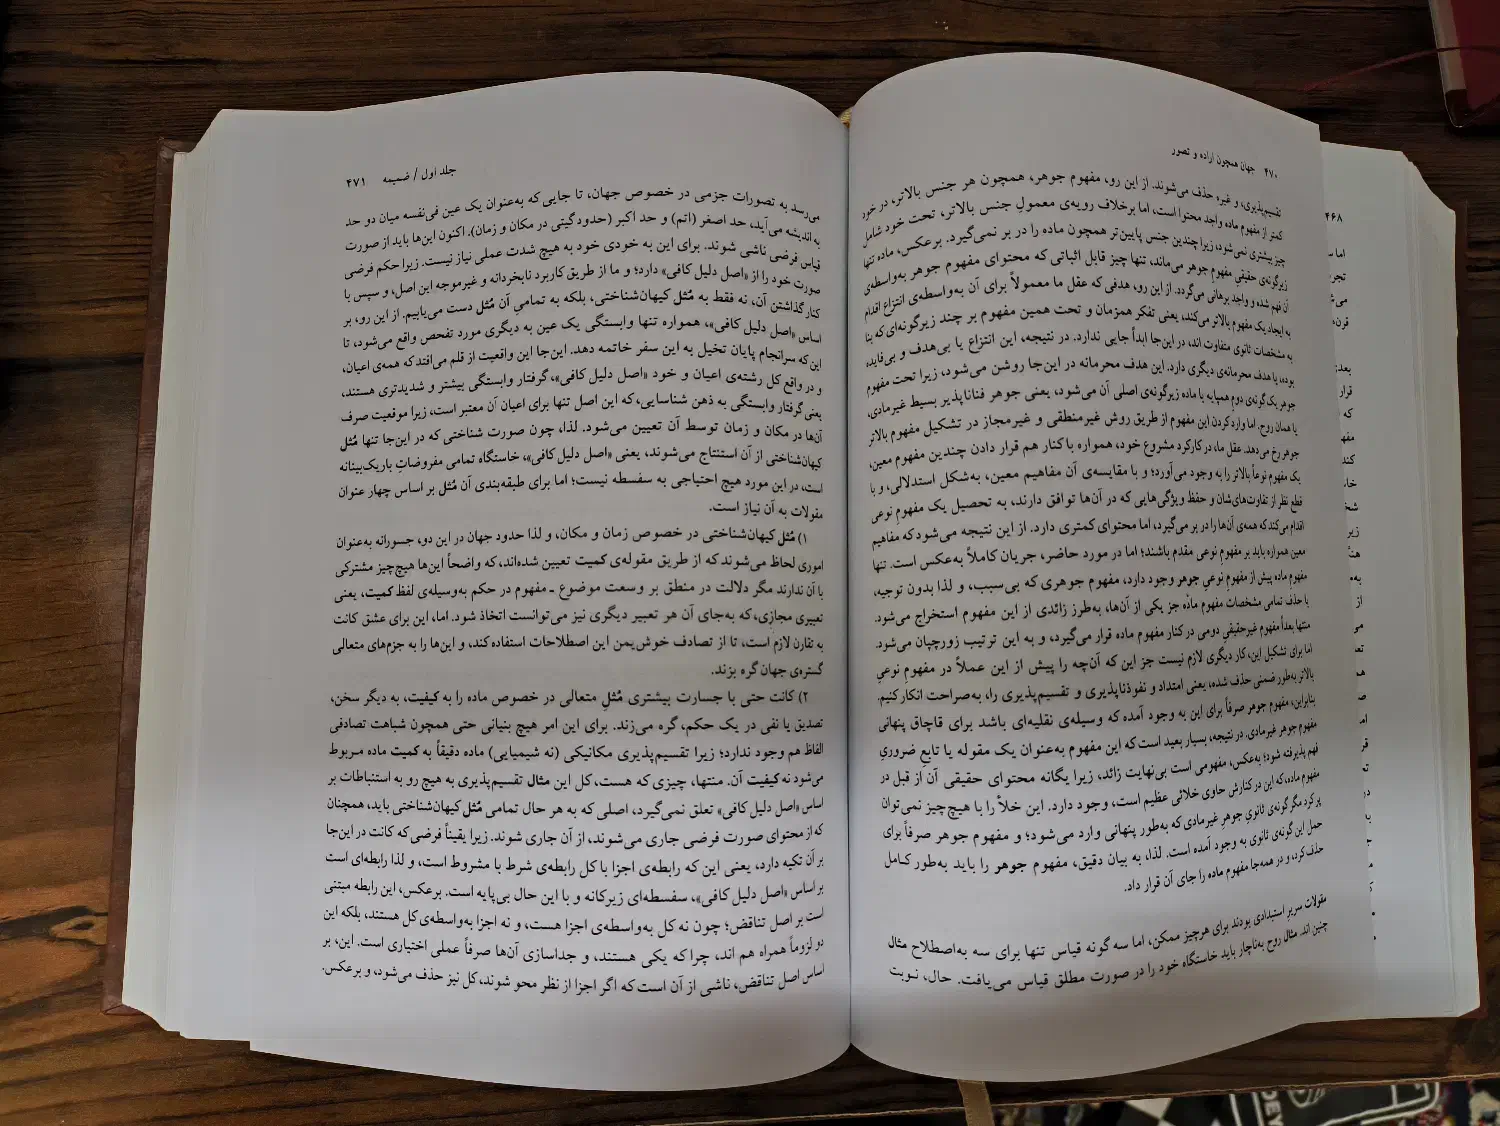 ۴۷۰ جهان همچون اراده و تصور
تقسیم‌پذیری، و غیره حذف می‌شوند. از این رو، مفهوم جوهر، همچون هر جنس بالاتر، در خود
کمتر از مفهوم ماده واجد محتوا است، اما برخلاف رویه‌ی معمولِ جنس بالاتر، تحت خود شامل
چیز بیشتری نمی‌شود، زیرا چندین جنس پایین‌تر همچون ماده را در بر نمی‌گیرد. برعکس، ماده تنها
زیرگونه‌ی حقیقیِ مفهوم جوهر می‌ماند، تنها چیز قابل اثباتی که محتوای مفهوم جوهر به‌واسطه‌ی
آن فهم شده و واجد برهانی می‌گردد. از این رو، هدفی که عقل ما معمولاً برای آن به‌واسطه‌ی انتزاع اقدام
به ایجاد یک مفهوم بالاتر می‌کند، یعنی تفکر همزمان و تحت همین مفهوم بر چند زیرگونه‌ای که بنا
به مشخصات ثانوی متفاوت اند، در این‌جا ابداً جایی ندارد. در نتیجه، این انتزاع یا بی‌هدف و بی‌فایده
بوده، یا هدف محرمانه‌ی دیگری دارد. این هدف محرمانه در این‌جا روشن می‌شود، زیرا تحت مفهوم
جوهر یک گونه‌ی دومِ همپایه با ماده زیرگونه‌ی اصلی آن می‌شود، یعنی جوهر فناناپذیر بسیط غیرمادی،
یا همان روح. اما وارد کردن این مفهوم از طریق روش غیرمنطقی و غیرمجاز در تشکیل مفهوم بالاتر
جوهر رخ می‌دهد. عقل ما، در کارکرد مشروع خود، همواره با کنار هم قرار دادن چندین مفهوم معین،
یک مفهوم نوعاً بالاتر را به وجود می‌آورد؛ و با مقایسه‌ی آن مفاهیم معین، به‌شکل استدلالی، و با
قطع نظر از تفاوت‌های‌شان و حفظ ویژگی‌هایی که در آن‌ها توافق دارند، به تحصیل یک مفهوم نوعی
اقدام می‌کند که همه‌ی آن‌ها را در بر می‌گیرد، اما محتوای کمتری دارد. از این نتیجه می‌شود که مفاهیم
معین همواره باید بر مفهوم نوعی مقدم باشند؛ اما در مورد حاضر، جریان کاملاً به‌عکس است. تنها
مفهوم ماده پیش از مفهوم نوعیِ جوهر وجود دارد، مفهوم جوهری که بی‌سبب، و لذا بدون توجیه،
با حذف تمامی مشخصات مفهوم ماده جز یکی از آن‌ها، به‌طرز زائدی از این مفهوم استخراج می‌شود.
منتها بعداً مفهوم غیرحقیقی دومی در کنار مفهوم ماده قرار می‌گیرد، و به این ترتیب زورچپان می‌شود.
اما برای تشکیل این، کار دیگری لازم نیست جز این که آن‌چه را پیش از این عملاً در مفهوم نوعیِ
بالاتر به‌طور ضمنی حذف شده، یعنی امتداد و نفوذناپذیری و تقسیم‌پذیری را، به‌صراحت انکار کنیم.
بنابراین، مفهوم جوهر صرفاً برای این به وجود آمده که وسیله‌ی نقلیه‌ای باشد برای قاچاق پنهانی
مفهوم جوهر غیرمادی. در نتیجه، بسیار بعید است که این مفهوم به‌عنوان یک مقوله یا تابع ضروریِ
فهم پذیرفته شود؛ به‌عکس، مفهومی است بی‌نهایت زائد، زیرا یگانه محتوای حقیقی آن از قبل در
مفهوم ماده، که این در کنارش حاوی خلائی عظیم است، وجود دارد. این خلأ را با هیچ‌چیز نمی‌توان
پر کرد مگر گونه‌ی ثانویِ جوهرِ غیرمادی که به‌طور پنهانی وارد می‌شود؛ و مفهوم جوهر صرفاً برای
حمل این گونه‌ی ثانوی به وجود آمده است. لذا، به بیان دقیق، مفهوم جوهر را باید به‌طور کامل
حذف کرد، و در همه‌جا مفهوم ماده را جای آن قرار داد.
مقولات سریر استبدادی بودند برای هرچیز ممکن، اما سه گونه قیاس تنها برای سه به‌اصطلاح مثال
چنین اند. مثال روح به‌ناچار باید خاستگاه خود را در صورت مطلق قیاس می‌یافت. حال، نوبت
جلد اول / ضمیمه ۴۷۱
می‌رسد به تصورات جزمی در خصوص جهان، تا جایی که به‌عنوان یک عین فی‌نفسه میان دو حد
به اندیشه می‌آید، حد اصغر (اتم) و حد اکبر (حدود گیتی در مکان و زمان). اکنون این‌ها باید از صورت
قیاس فرضی ناشی شوند. برای این به خودی خود به هیچ شدت عملی نیاز نیست. زیرا حکم فرضی
صورت خود را از «اصل دلیل کافی» دارد؛ و ما از طریق کاربرد نابخردانه و غیرموجه این اصل، و سپس با
کنار گذاشتن آن، نه فقط به مُثل کیهان‌شناختی، بلکه به تمامیِ آن مُثل دست می‌یابیم. از این رو، بر
اساس «اصل دلیل کافی»، همواره تنها وابستگی یک عین به دیگری مورد تفحص واقع می‌شود، تا
این که سرانجام پایان تخیل به این سفر خاتمه دهد. این‌جا این واقعیت از قلم می‌افتد که همه‌ی اعیان،
و در واقع کل رشته‌ی اعیان و خود «اصل دلیل کافی»، گرفتار وابستگی بیشتر و شدیدتری هستند،
یعنی گرفتار وابستگی به ذهن شناسایی، که این اصل تنها برای اعیان آن معتبر است، زیرا موقعیت صرف
آن‌ها در مکان و زمان توسط آن تعیین می‌شود. لذا، چون صورت شناختی که در این‌جا تنها مُثل
کیهان‌شناختی از آن استنتاج می‌شوند، یعنی «اصل دلیل کافی»، خاستگاه تمامی مفروضاتِ باریک‌بینانه
است، در این مورد هیچ احتیاجی به سفسطه نیست؛ اما برای طبقه‌بندی آن مُثل بر اساس چهار عنوان
مقولات به آن نیاز است.
۱) مُثل کیهان‌شناختی در خصوص زمان و مکان، و لذا حدود جهان در این دو، جسورانه به‌عنوان
اموری لحاظ می‌شوند که از طریق مقوله‌ی کمیت تعیین شده‌اند، که واضحاً این‌ها هیچ‌چیز مشترکی
با آن ندارند مگر دلالت در منطق بر وسعت موضوع ـ مفهوم در حکم به‌وسیله‌ی لفظ کمیت، یعنی
تعبیری مجازی، که به‌جای آن هر تعبیر دیگری نیز می‌توانست اتخاذ شود. اما، این برای عشق کانت
به تقارن لازم است، تا از تصادف خوش‌یمن این اصطلاحات استفاده کند، و این‌ها را به جزم‌های متعالی
گستره‌ی جهان گره بزند.
۲) کانت حتی با جسارت بیشتری مُثلِ متعالی در خصوص ماده را به کیفیت، به دیگر سخن،
تصدیق یا نفی در یک حکم، گره می‌زند. برای این امر هیچ بنیانی حتی همچون شباهت تصادفی
الفاظ هم وجود ندارد؛ زیرا تقسیم‌پذیری مکانیکی (نه شیمیایی) ماده دقیقاً به کمیت ماده مربوط
می‌شود نه کیفیت آن. منتها، چیزی که هست، کل این مثال تقسیم‌پذیری به هیچ رو به استنباطات بر
اساس «اصل دلیل کافی» تعلق نمی‌گیرد، اصلی که به هر حال تمامی مُثل کیهان‌شناختی باید، همچنان
که از محتوای صورت فرضی جاری می‌شوند، از آن جاری شوند. زیرا یقیناً فرضی که کانت در این‌جا
بر آن تکیه دارد، یعنی این که رابطه‌ی اجزا با کل رابطه‌ی شرط با مشروط است، و لذا رابطه‌ای است
بر اساس «اصل دلیل کافی»، سفسطه‌ای زیرکانه و با این حال بی‌پایه است. برعکس، این رابطه مبتنی
است بر اصل تناقض؛ چون نه کل به‌واسطه‌ی اجزا هست، و نه اجزا به‌واسطه‌ی کل هستند، بلکه این
دو لزوماً همراه هم اند، چرا که یکی هستند، و جداسازی آن‌ها صرفاً عملی اختیاری است. این، بر
اساس اصل تناقض، ناشی از آن است که اگر اجزا از نظر محو شوند، کل نیز حذف می‌شود، و برعکس.
۴۶۸